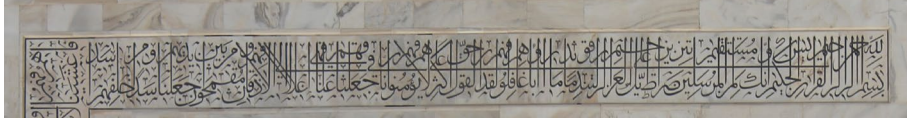 بسم الله الرحمن الرحيم يس والقرآن الحكيم إنك لمن المرسلين على صراط مستقيم تنزيل العزيز الرحيم لتنذر قوما ما أنذر آباؤهم فهم غافلون لقد حق القول على أكثرهم فهم لا يؤمنون إنا جعلنا في أعناقهم أغلالا فهي إلى الأذقان فهم مقمحون وجعلنا من بين أيديهم سدا ومن خلفهم سدا